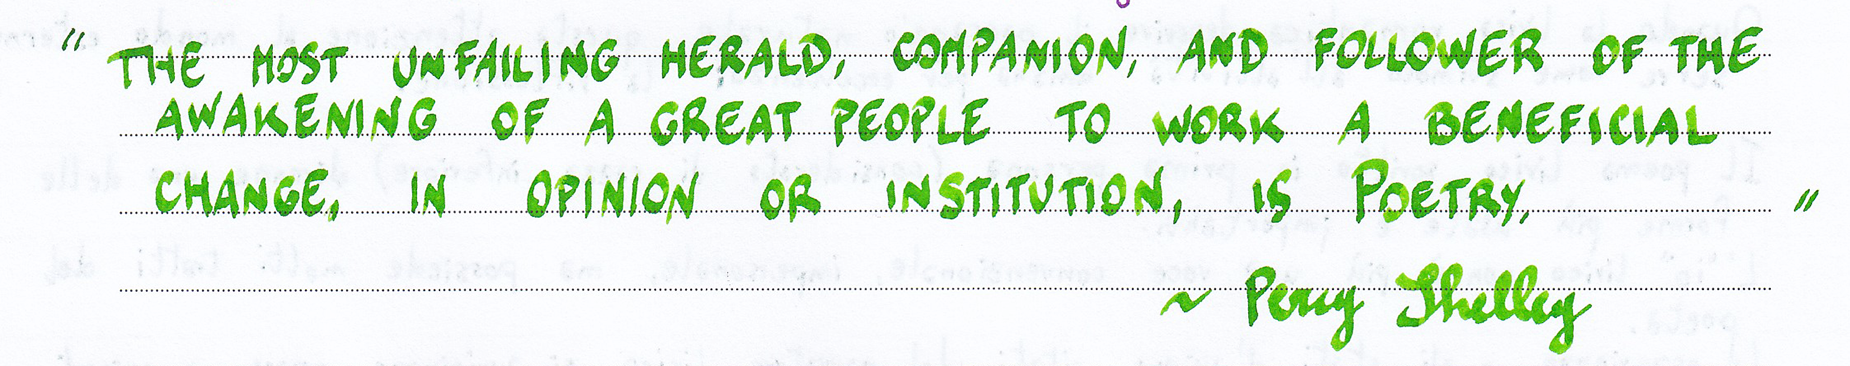 " THE MOST UNFAILING HERALD, COMPANION, AND FOLLOWER OF THE
AWAKENING OF A GREAT PEOPLE TO WORK A BENEFICIAL
CHANGE, IN OPINION OR INSTITUTION, IS POETRY. "
~ Percy Shelley